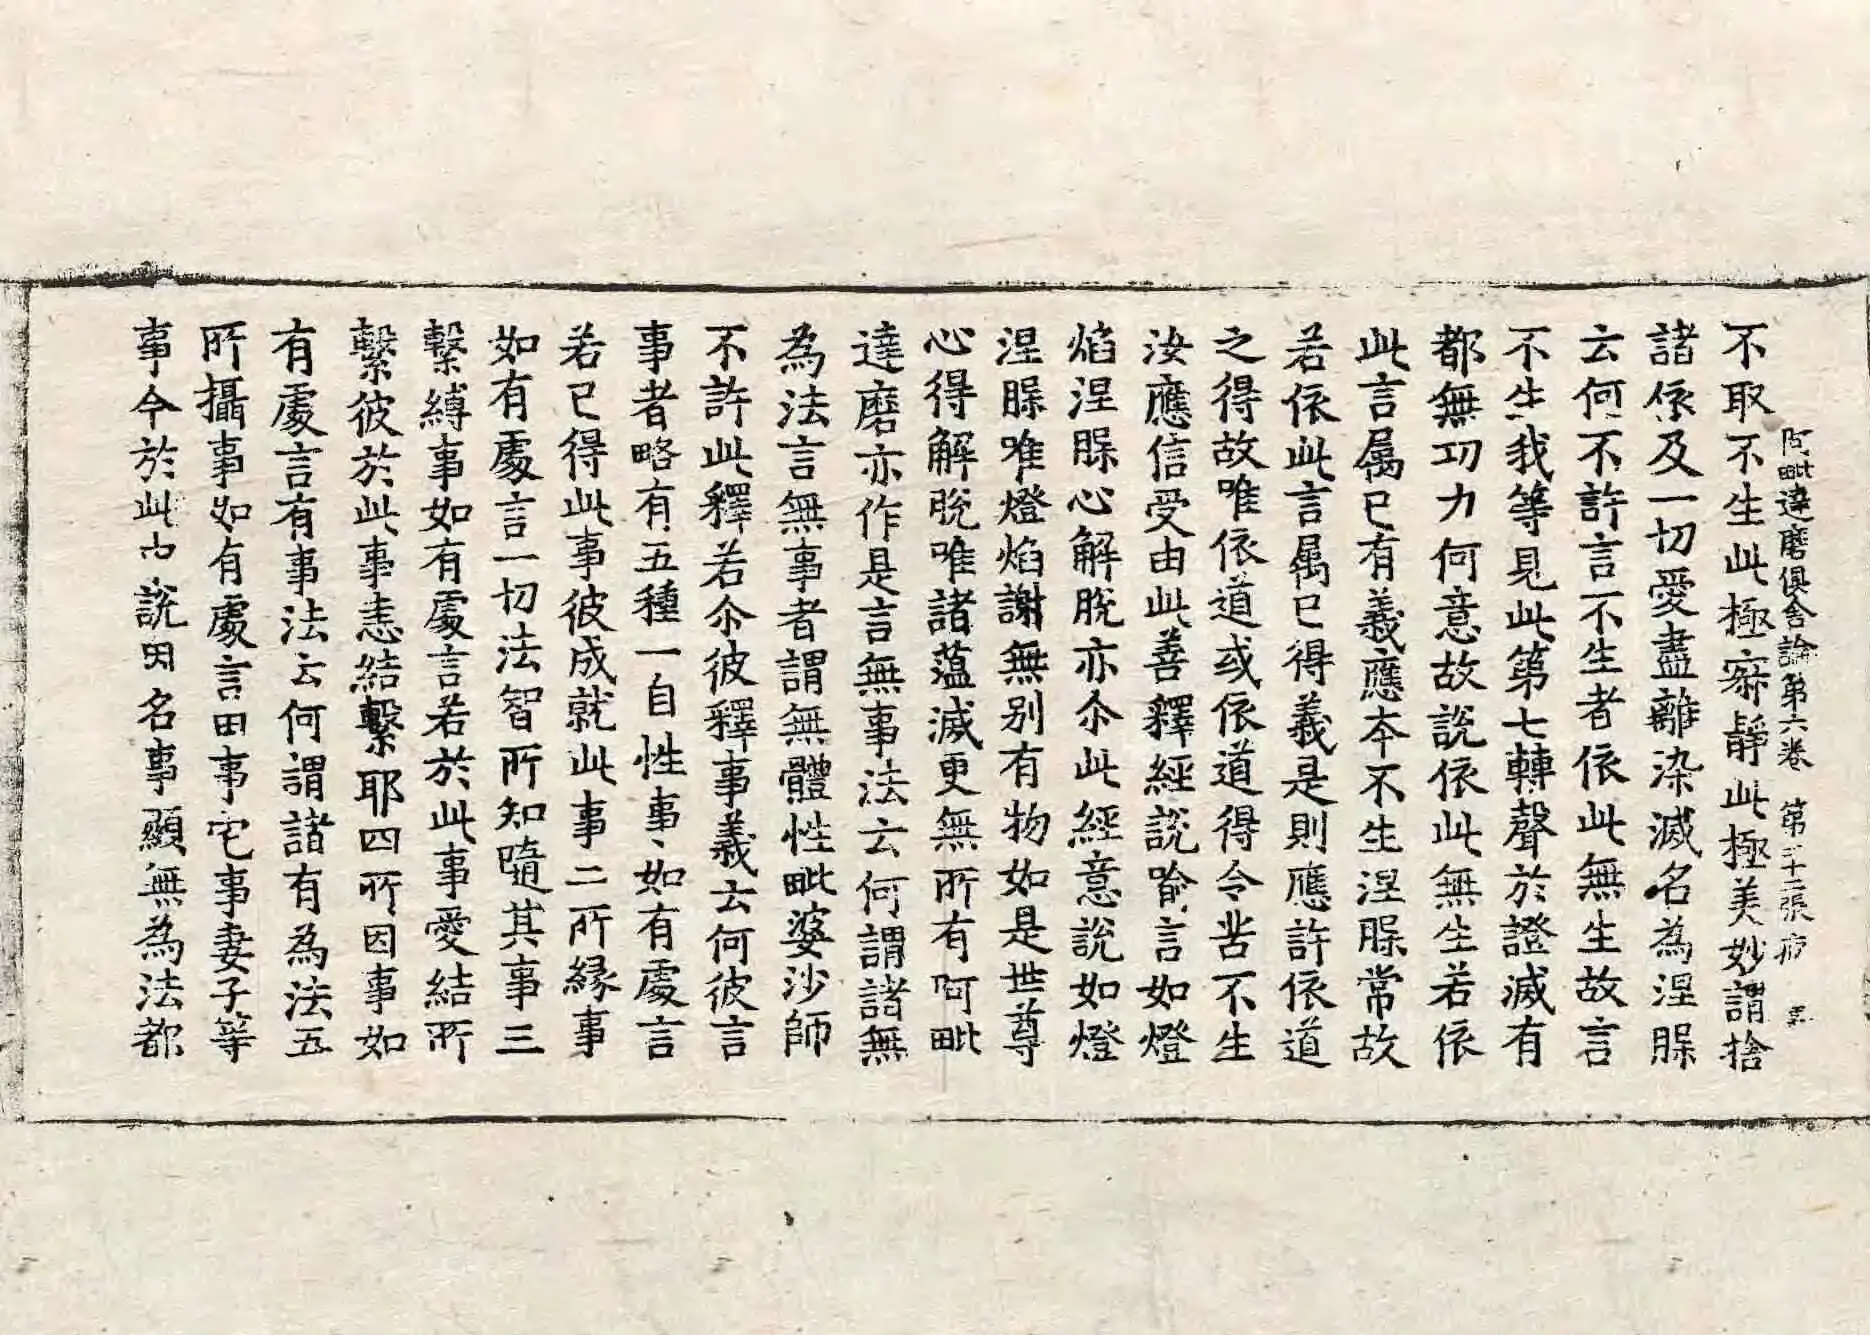 阿毗達磨俱舍論第六卷　第二十二張　疲
不取不生此極寂靜此極美妙謂捨
諸依及一切愛盡離染滅名為涅槃
云何不許言不生者依此無生故言
不生我等見此第七轉聲於證滅有
都無功力何意故說依此無生若依
此言屬已有義應本不生涅槃常故
若依此言屬已得義是則應許依道
之得故唯依道或依道得令苦不生
汝應信受由此善釋經說喻言如燈
焰涅槃心解脫亦尒此經意說如燈
涅槃唯燈焰謝無別有物如是世尊
心得解脫唯諸蘊滅更無所有阿毗
達磨亦作是言無事法云何謂諸無
為法言無事者謂無體性毗婆沙師
不許此釋若尒彼釋事義云何彼言
事者略有五種一自性事如有處言
若已得此事彼成就此事二所緣事
如有處言一切法智所知隨其事三
繫縛事如有處言若於此事愛結所
繫彼於此事恚結繫耶四所因事如
有處言有事法云何謂諸有為法五
所攝事如有處言田事宅事妻子等
事今於此中說因名事顯無為法都